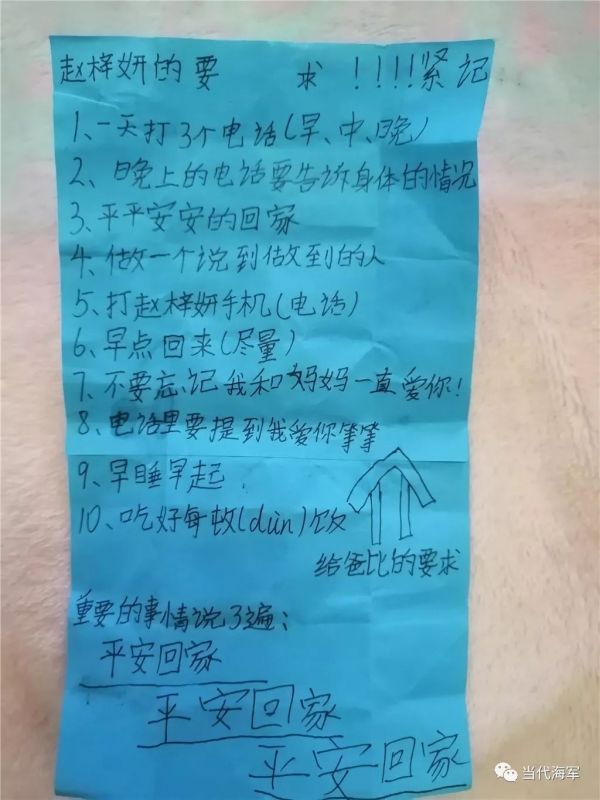 赵梓妍的要求!!!!紧记
1、一天打3个电话(早、中、晚)
2、晚上的电话要告诉身体的情况
3、平平安安的回家
4、做一个说到做到的人
5、打赵梓妍手机(电话)
6、早点回来(尽量)
7、不要忘记我和妈妈一直爱你!
8、电话里要提到我爱你等等
9、早睡早起
10、吃好每顿(dùn)饭
给爸比的要求
重要的事情说3遍:
平安回家
平安回家
平安回家
当代海军